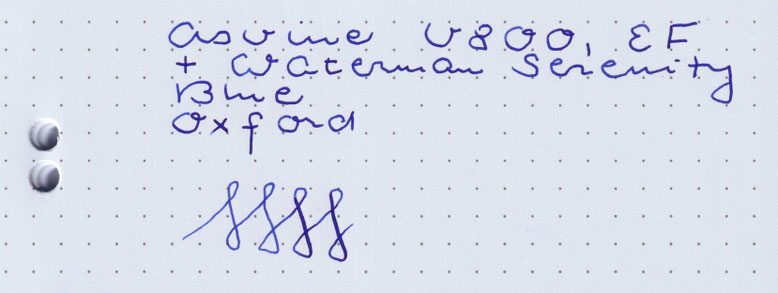 Asvine V800, EF
+ Waterman Serenity
Blue
Oxford